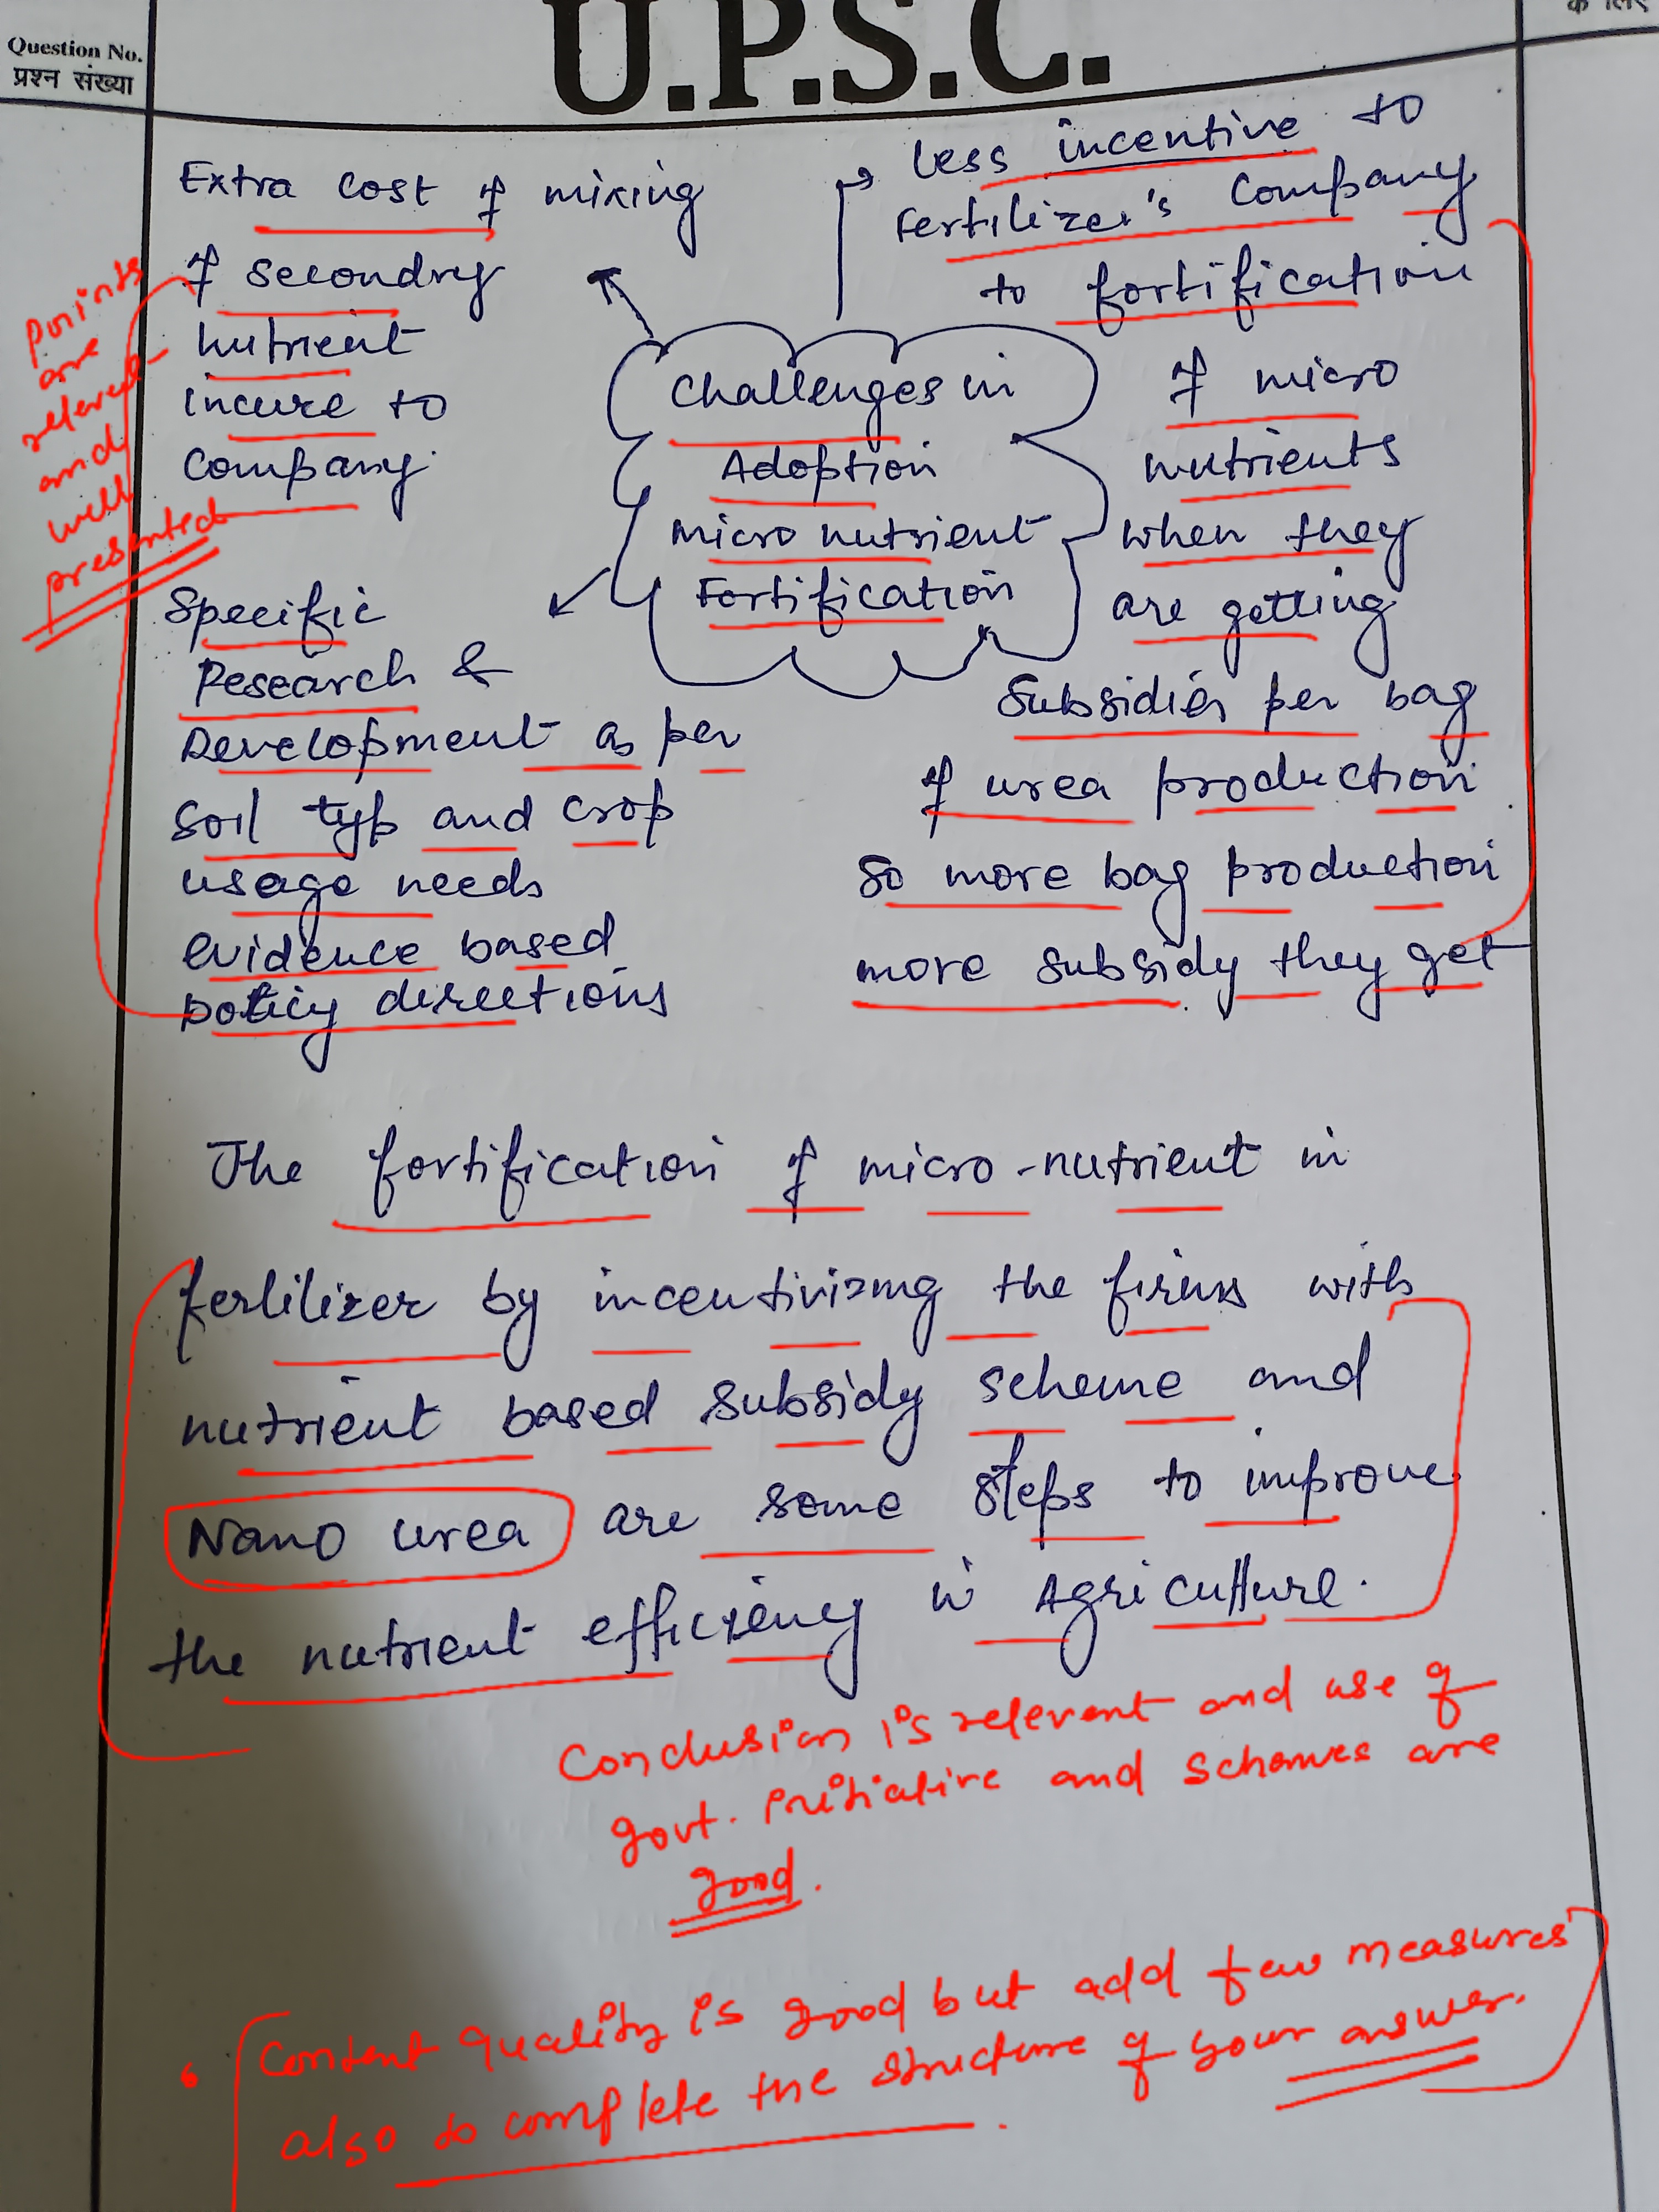 U.P.S.C.
Question No.
प्रश्न संख्या
के लिए
Extra cost of mixing
of secondry
nutrient
incure to
company.
less incentive to
fertilizer's company
to fortification
of micro
nutrients
when they
are getting
subsidies per bag
of urea production
so more bag production
more subsidy they get
Challenges in
Adoption
Micro nutrient
Fortification
Specific
Research &
Development as per
soil typ and crop
usage needs
evidence based
policy directions
points
are
relevent
and
well
presented
The fortification of micro-nutrient in
fertilizer by incentivizing the firms with
nutrient based subsidy scheme and
Nano urea are some steps to improve
the nutrient efficieny in Agriculture.
Conclusion is relevent and use of
govt. initiative and schemes are
good.
Content quality is good but add few measures
also to complete the structure of your answer.